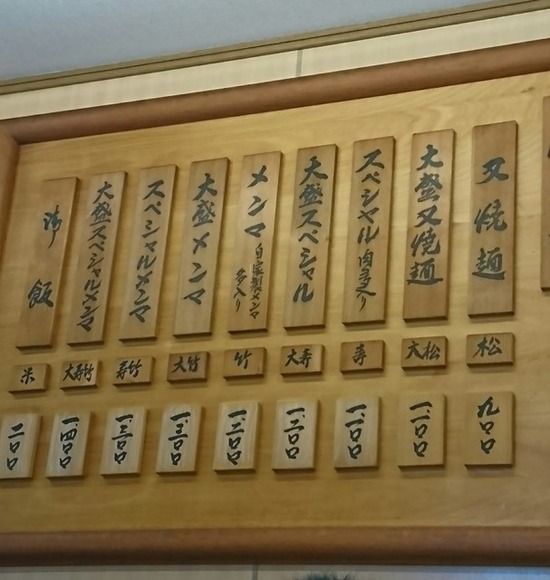 叉焼麺
松
九〇〇
大盛叉焼麺
大松
一、一〇〇
スペシャル肉多入り
寿
一、一〇〇
大盛スペシャル
大寿
一、三〇〇
メンマ自家製メンマ
多入り
竹
大盛メンマ
大竹
一、三〇〇
スペシャルメンマ
寿竹
一、三〇〇
大盛スペシャルメンマ
大寿竹
一、四〇〇
御飯
米
二〇〇